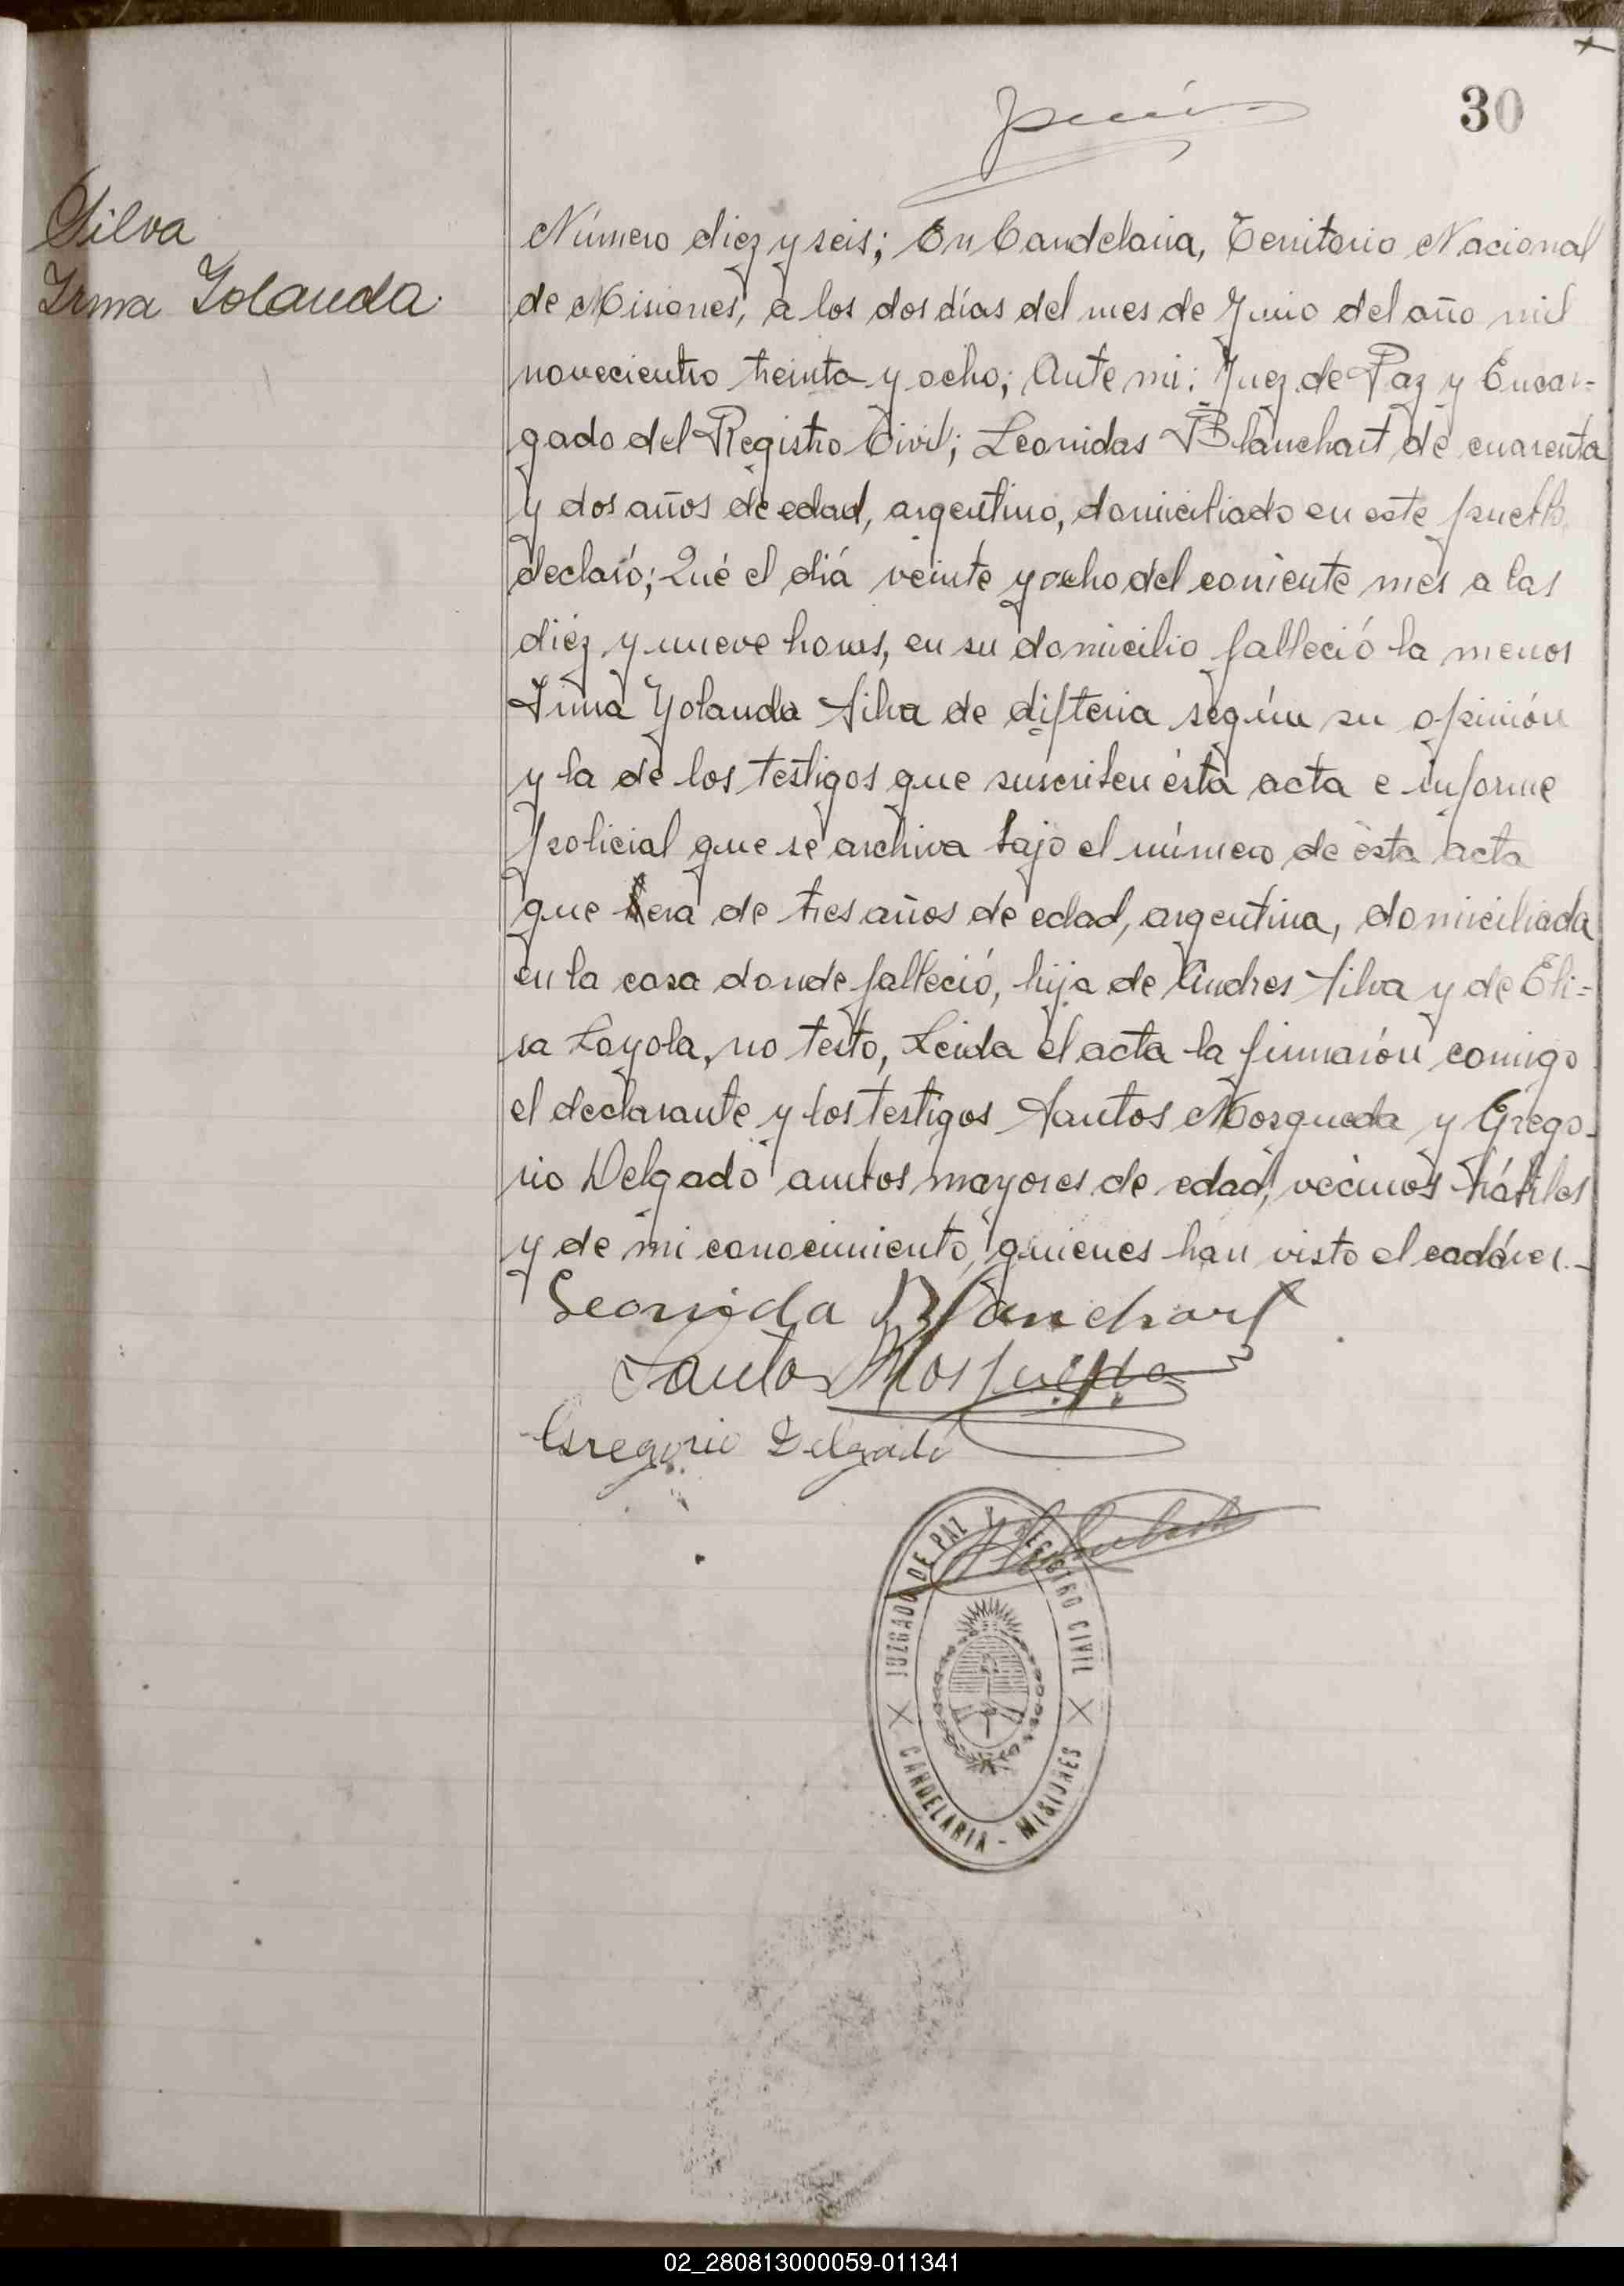 30
Silva
Irma Yolanda.
Número diez y seis; En Candelaria, Territorio Nacional
de Misiones, a los dos días del mes de Junio del año mil
novecientro treinta y ocho; Ante mi: Juez de Paz y Encar=
gado del Registro Civil; Leonidas Blanchart de cuarenta
y dos años de edad, argentino, domiciliado en este pueblo,
declaró; Qué el diá veinte y ocho del corriente mes a las
diéz y nueve horas, en su domicilio falleció la menor
Irma Yolanda Silva de difteria según su opinión
y la de los testigos que suscriben ésta acta e informe
policial que se archiva bajo el número de ésta acta
que era de tres años de edad, argentina, domiciliada
en la casa donde falleció, hija de Andres Silva y de Eli=
sa Loyola, no testó, Leida el acta la firmarón comigo
el declarante y los testigos Santos Mosqueda y Grego-
rio Delgado ambos mayores de edad, vecinos hábiles
y de mi conocimiento, quienes han visto el cadáver.-
Leonida Blanchart
Santos Mosqueda
Gregorio Delgado
JUZGADO DE PAZ Y REGISTRO CIVIL
CANDELARIA - MISIONES
02_280813000059-011341